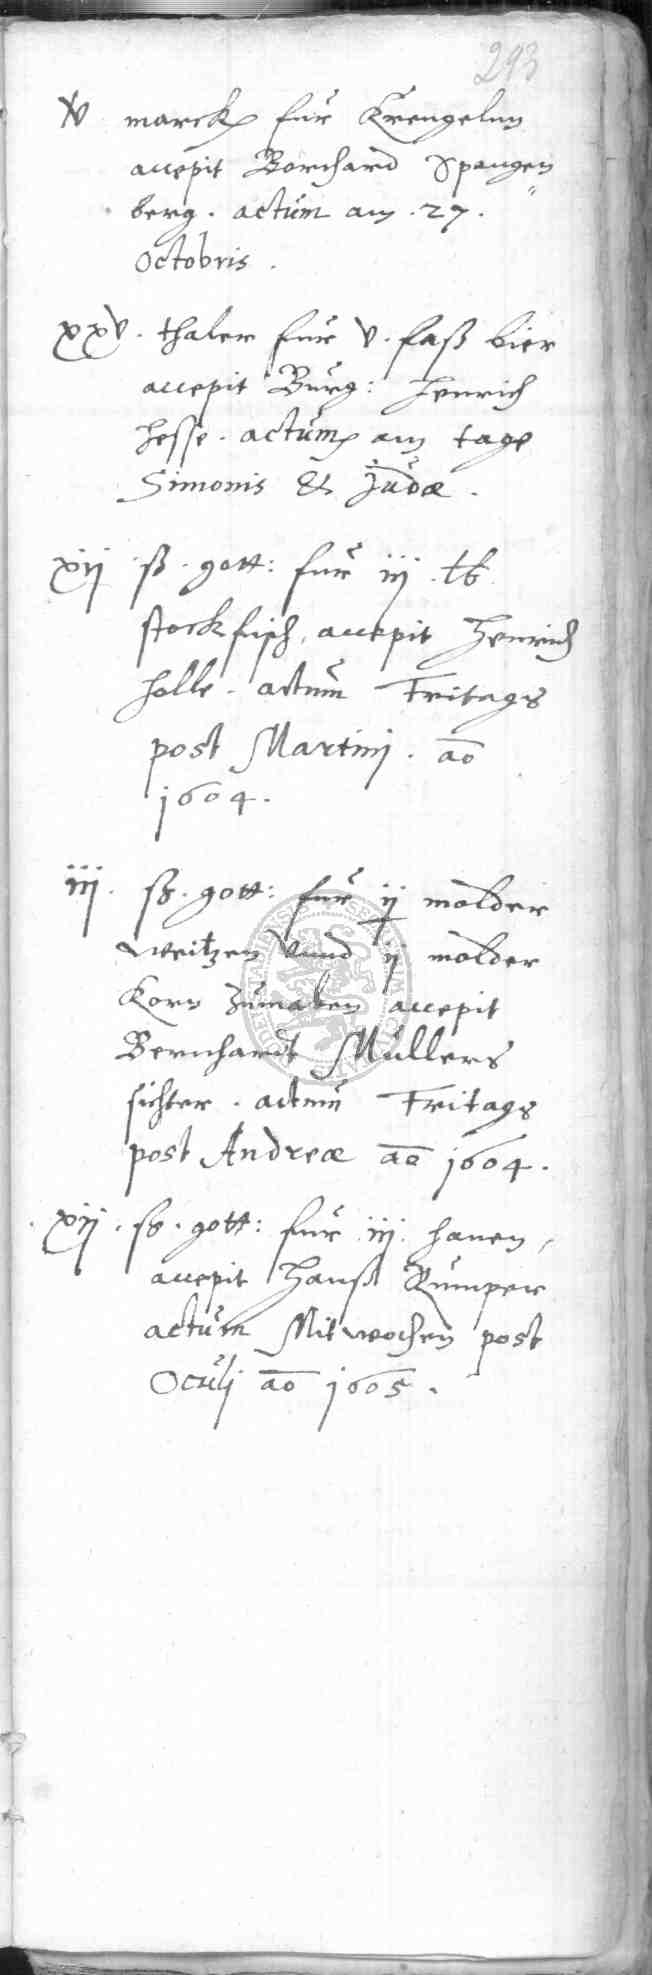 293
v marck fur Krengelnn
accepit Borchard Spangen
berg. actum am .27.
Octobris.
xxv. thaler fur v. faß bier
accepit Burg: Henrich
Hesse. actum am tage
Simonis & Judæ.
xij ß. gott: fur iij. tb.
stockfisch, accepit Henrich
Holle. actum Fritags
post Martinj. ao
1604.
iij. ß. gott: fur ij molder
weitzen vnnd ij molder
Korn zumalen accepit
Bernhardt Mullers
sichter. actum Fritags
post Andreæ ao 1604.
xij. ß. gott: fur iij. hanen,
accepit Hanß Kumper
actum Mitwochen post
Oculj ao 1605.